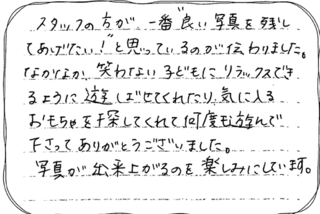 スタッフの方が、一番"良い写真を残し
てあげたい！"と思っているのが伝わりました。
なかなか、笑わない子どもにリラックスでき
るように遊ばせてくれたり、気に入る
おもちゃを探してくれて何度も遊んで
下さってありがとうございました。
写真が出来上がるのを楽しみにしています。